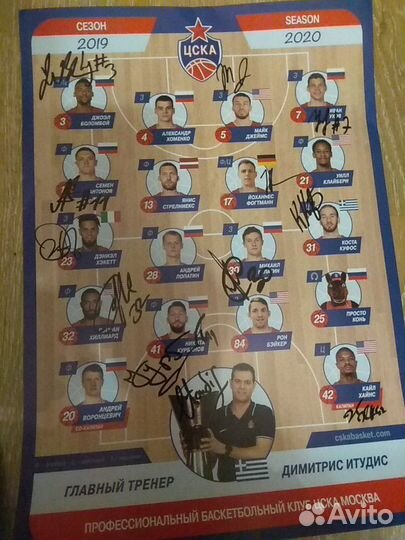 СЕЗОН
2019
SEASON
2020
ЦСКА
3
ДЖОЭЛ
БОЛОМБОЙ
4
АЛЕКСАНДР
ХОМЕНКО
5
МАЙК
ДЖЕЙМС
7
ИВАН
УХОВ
СЕМЕН
АНТОНОВ
13
ЯНИС
СТРЕЛНИЕКС
17
ЙОХАННЕС
ФОГТМАНН
21
УИЛЛ
КЛАЙБЕРН
23
ДЭНИЭЛ
ХЭКЕТТ
28
АНДРЕЙ
ЛОПАТИН
30
МИХАИЛ
31
КОСТА
КУФОС
32
ХИЛЛИАРД
41
НИКИТА
КУРБАНОВ
84
РОН
БЭЙКЕР
25
ПРОСТО
КОНЬ
20
АНДРЕЙ
ВОРОНЦЕВИЧ
СО-КАПИТАН
КАЙЛ
ХАЙНС
КАПИТАН
cskabasket.com
ГЛАВНЫЙ ТРЕНЕР
ДИМИТРИС ИТУДИС
ПРОФЕССИОНАЛЬНЫЙ БАСКЕТБОЛЬНЫЙ КЛУБ ЦСКА МОСКВА
Avito